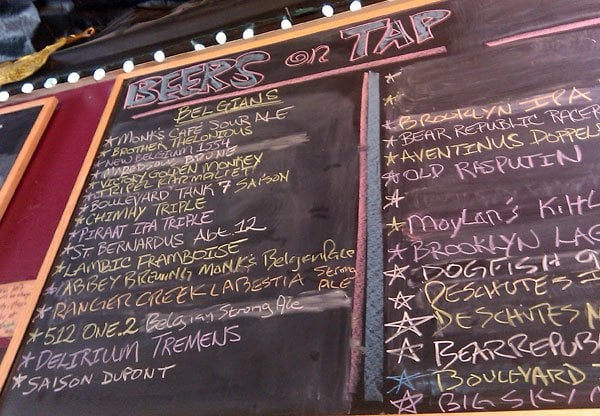 BEERS on TAP
BELGIANS
MONK'S CAFE SOUR ALE
BROTHER THELONIOUS
NEW BELGIUM 1554
MAREDSOUS BRUNE
VICTORY GOLDEN MONKEY
TRIPEL KARMELIET
BOULEVARD TANK 7 SAISON
CHIMAY TRIPLE
PIRAAT IPA TRIPLE
ST. BERNARDUS Abt. 12
LAMBIC FRAMBOISE
ABBEY BREWING MONKS Belgian Pale
RANGER CREEK LA BESTIA Strong ALE
512 ONE.2 Belgian Strong Ale
DELIRIUM TREMENS
SAISON DUPONT
BROOKLYN IPA
BEAR REPUBLIC RACER
AVENTINUS DOPPEL
OLD RASPUTIN
MOYLAN'S
BROOKLYN LAG
DOGFISH 9
DESCHUTES
DESCHUTES
BEAR REPUB
BOULEVARD
BIG SKY